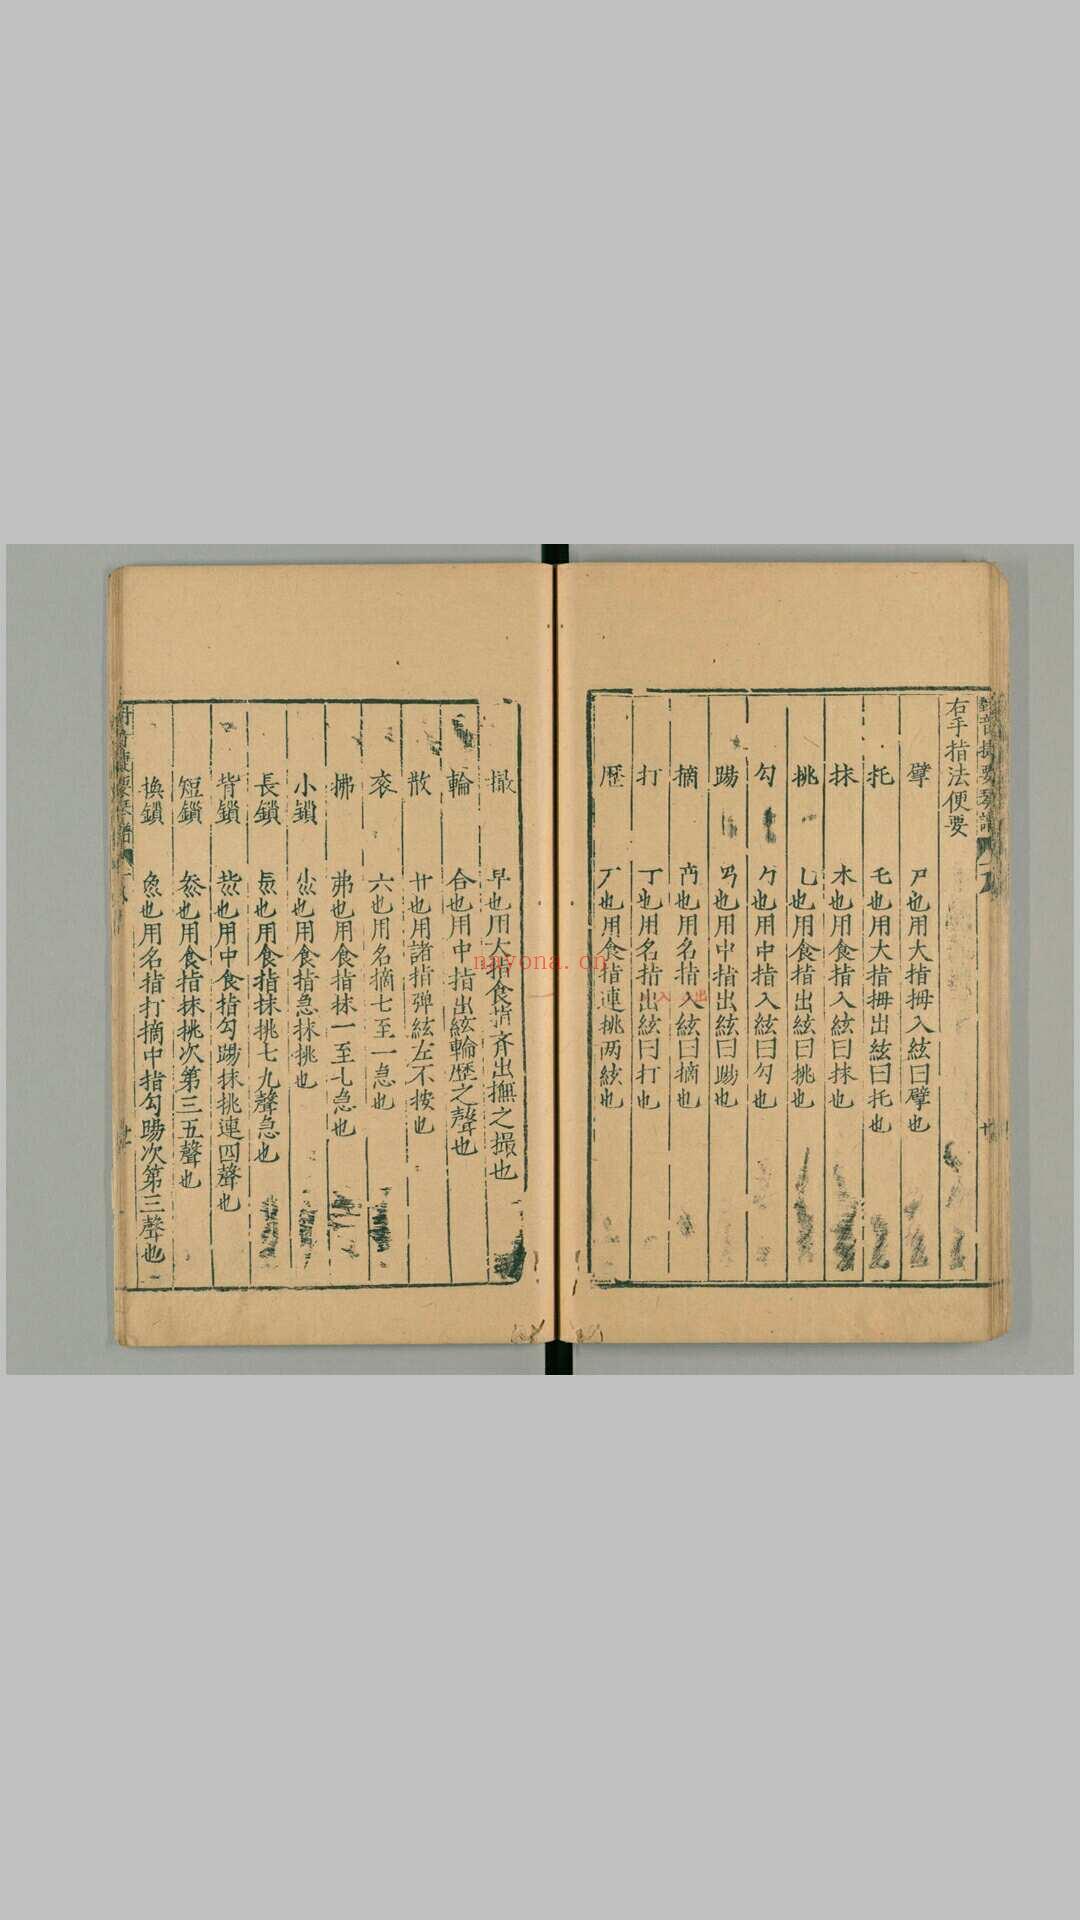 右手指法便要
擘 尸也用大指拇入絃曰擘也
托 乇也用大指拇出絃曰托也
抹 木也用食指入絃曰抹也
挑 乚也用食指出絃曰挑也
勾 勹也用中指入絃曰勾也
踢 也用中指出絃曰踢也
摘 也用名指入絃曰摘也
打 丁也用名指出絃曰打也
歷 厂也用食指連挑两絃也
撮 早也用大指食指齐出撫之撮也
輪 合也用中指出絃輪歷之聲也
散 艹也用諸指弹絃左不按也
衮 六也用名摘七至一急也
拂 弗也用食指抹一至七急也
小鎖 也用食指急抹挑也
長鎖 也用食指抹挑七九聲急也
背鎖 也用中食指勾踢抹挑連四聲也
短鎖 也用食指抹挑次第三五聲也
換鎖 也用名指打摘中指勾踢次第三聲也
nnyona.cn